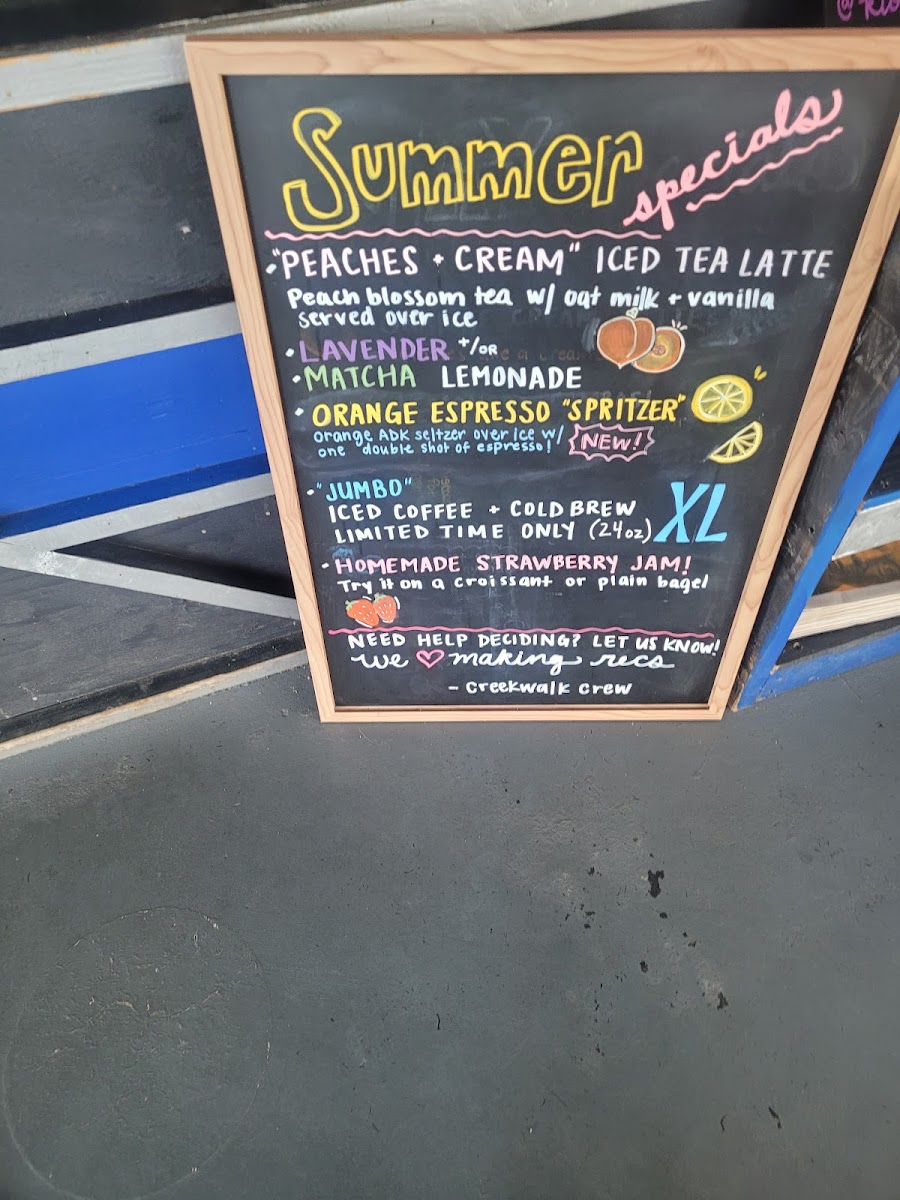 Summer specials
• "PEACHES + CREAM" ICED TEA LATTE
Peach blossom tea w/ oat milk + vanilla
served over ice
• LAVENDER +/OR
• MATCHA LEMONADE
• ORANGE ESPRESSO "SPRITZER"
orange ADK seltzer over ice w/
one double shot of espresso!
NEW!
• "JUMBO"
ICED COFFEE + COLD BREW
LIMITED TIME ONLY (24oz)
XL
• HOMEMADE STRAWBERRY JAM!
Try it on a croissant or plain bagel
NEED HELP DECIDING? LET US KNOW!
we ♡ making recs
- creekwalk crew